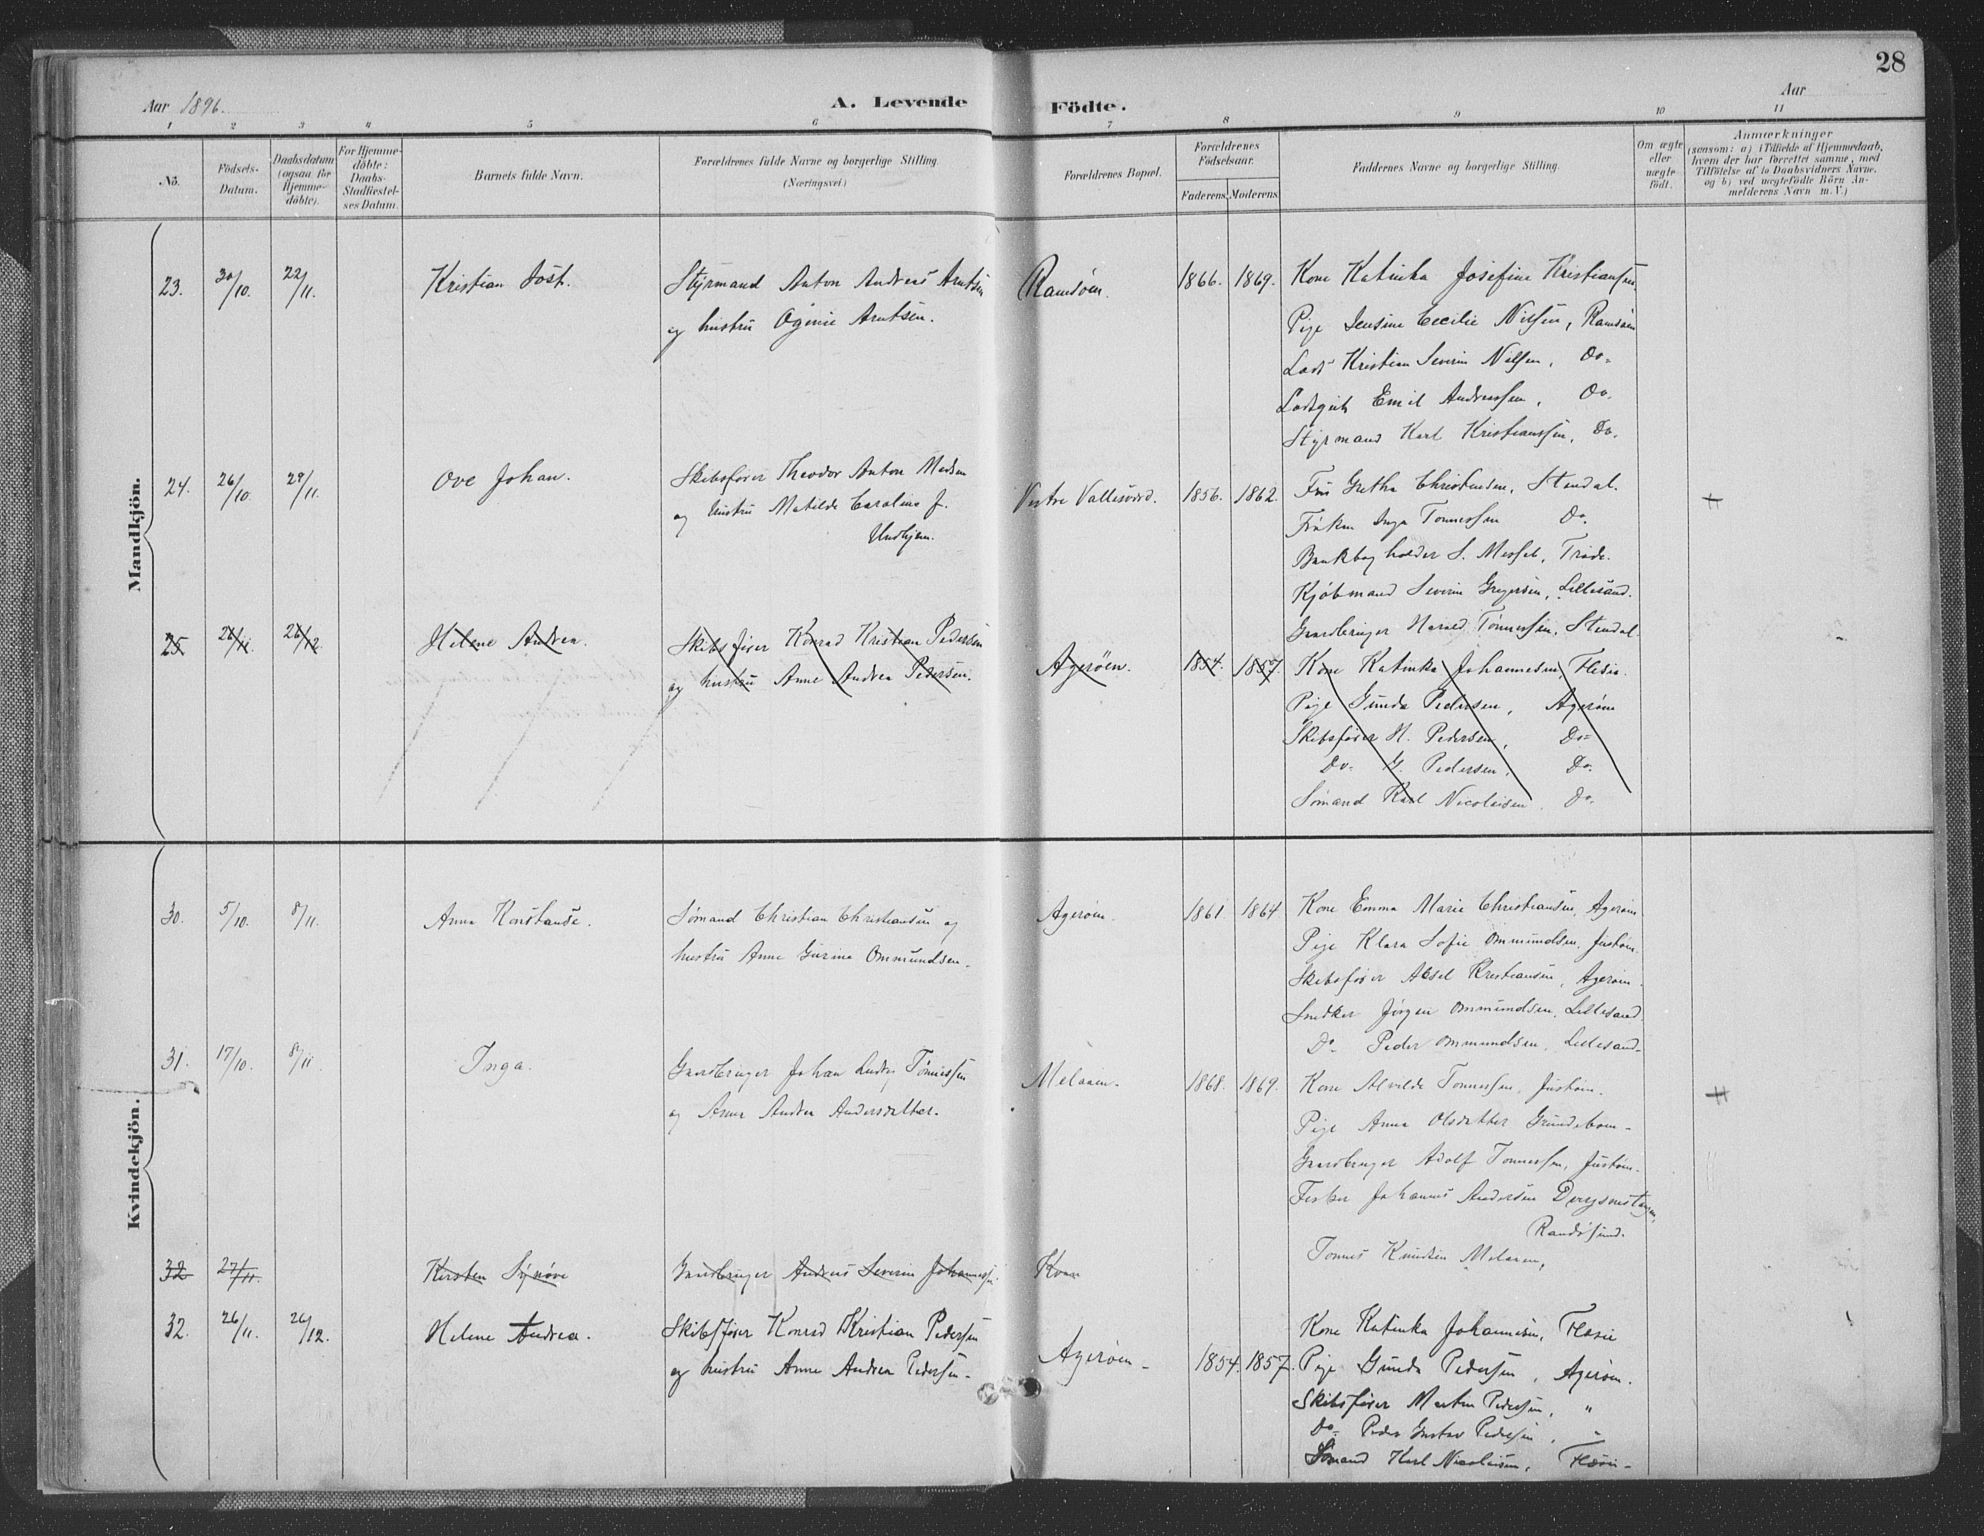 28
Aar 1896. A. Levende Födte. Aar
1 2 3 4 5 6 7 8 9 10 11
No.
Födsels-
Datum.
Daabsdatum
(ogsaa for
Hjemme-
döbte).
For Hjemme-
döbte:
Daabs-
Stadfæstel-
ses Datum.
Barnets fulde Navn.
Forældrenes fulde Navne og borgerlige Stilling
(Næringsvei)
Forældrenes Bopæl.
Forældrenes
Födselsaar.
Faderens Moderens
Faddernes Navne og borgerlige Stilling.
Om ægte
eller
uægte
födt.
Anmærkninger
(saasom: a) i Tilfælde af Hjemmedaab,
hvem der har forrettet samme, med
Tilföielse af to Daabsvidners Navne,
og b) ved uægtefödte Börn An-
melderens Navn m. V.)
Mandkjön.
23. 30/10. 22/11. Kristian
Styrmand Anton Andreas Arntsen
og hustru Ogine Arntsen.
Ramsöen. 1866. 1869.
Kone Katinka Josefine Kristiansen
Pige Jensine Cecilie Nilsen, Ramsöen
Lods Kristian Severin Nilsen, Do.
Emil Andreassen, Do.
Styrmand Karl Kristianssen, Do.
24. 26/10. 29/11. Ove Johan.
Skibsfører Theodor Anton Madsen
og hustru Matilde Caroline f.
Vestre Vallesværd. 1856. 1862.
Fru Grethe Christensen, Stendal.
Frøken Inga Tønnessen Do.
Bankbogholder S. Messel,
Kjøbmand Severin Gregersen, Lillesand.
Gaardbruger Harald Tønnessen, Stendal
25 26/11. 26/12 Helene Andrea.
Skibsfører Konrad Kristian Pedersen
og hustru Anne Andrea Pedersen.
Agerøen. 1854. 1857.
Kone Katinka Johannesen,
Pige Gunda Pedersen, Agerøen
Skibsfører M. Pedersen, Do
Do. G. Pedersen, Do.
Sømand Karl Nicolaisen. Do.
Kvindekjön.
30. 5/10. 8/11. Anna Konstanse.
Sømand Christian Christiansen og
hustru Anne Gurine Ommundsen.
Agerøen. 1861. 1864
Kone Emma Marie Christiansen, Agerøen
Pige Klara Sofie Ommundsen, Justøen.
Skibsfører Aksel Kristiansen, Agerøen.
Snedker Jørgen Ommundsen, Lillesand.
Do. Peder Ommundsen, Lillesand.
31. 17/10. 8/11. Inga.
Gaardbruger Johan Tønnessen
og Anne Andrea Andersdatter.
Melaaen. 1868. 1869.
Kone Alvilde Tønnessen, Justøen.
Pige Anna Olsdatter
Gaardbruger Adolf Tønnessen, Justøen.
Fisker Johannes Andersen
Randøsund.
Tønnes Knudsen Melaaen,
32 27/11. Kirsten Synøve
Gaardbruger Andreas Severin Johannessen.
32. 26/11. 26/12. Helene Andrea.
Skibsfører Konrad Kristian Pedersen
og hustru Anne Andrea Pedersen.
Agerøen. 1854. 1857.
Kone Katinka Johannesen,
Pige Gunda Pedersen, Agerøen.
Skibsfører Martin Pedersen, "
Do. Peder Gustav Pedersen, "
Sømand Karl Nicolaisen,